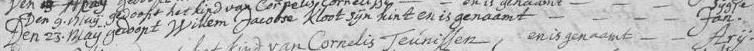 Den 9. May gedoopt het kind van Cornelis Cornelisz en is genaamt
Den 23. May gedoopt Willem Jacobse Kloot sÿn kint en is genaamt — — — Jan.
het kind van Cornelis Teunissen, en is genaamt — — Ary